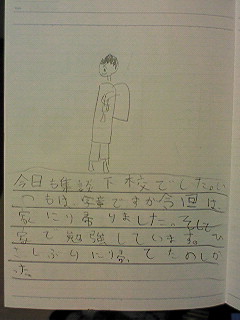 今日も集談下校でした。い
つもは、学童ですが今回は
家にり帰りました。そして
家で勉強しています。ひ
さしぶりにり家でたのしか
った